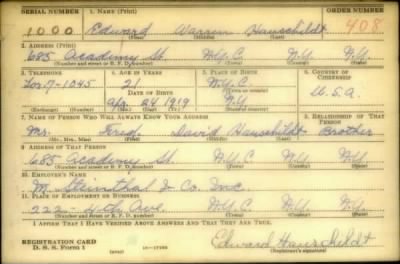 SERIAL NUMBER 1. NAME (Print) ORDER NUMBER
1000 Edward Warren Hauschildt 408
(First) (Middle) (Last)
2. ADDRESS (Print)
685 Academy St. N.Y.C. N.Y. N.Y.
(Number and street or R. F. D. number) (Town) (County) (State)
3. TELEPHONE 4. AGE IN YEARS 5. PLACE OF BIRTH 6. COUNTRY OF CITIZENSHIP
Lor. 7-1045 21 N.Y.C.
DATE OF BIRTH (Town or county) U.S.A.
Apr. 24 1919 N.Y.
(Exchange) (Number) (Mo.) (Day) (Yr.) (State or country)
7. NAME OF PERSON WHO WILL ALWAYS KNOW YOUR ADDRESS 8. RELATIONSHIP OF THAT PERSON
Mr. Fred David Hauschildt Brother
(Mr., Mrs., Miss) (First) (Middle) (Last)
9. ADDRESS OF THAT PERSON
685 Academy St. N.Y.C. N.Y. N.Y.
(Number and street or R. F. D. number) (Town) (County) (State)
10. EMPLOYER'S NAME
M. Steinthal & Co. Inc.
11. PLACE OF EMPLOYMENT OR BUSINESS
222-4th Ave. N.Y.C. N.Y. N.Y.
(Number and street or R. F. D. number) (Town) (County) (State)
I AFFIRM THAT I HAVE VERIFIED ABOVE ANSWERS AND THAT THEY ARE TRUE.
REGISTRATION CARD
D. S. S. Form 1 (over) Edward Hauschildt
(Registrant's signature)